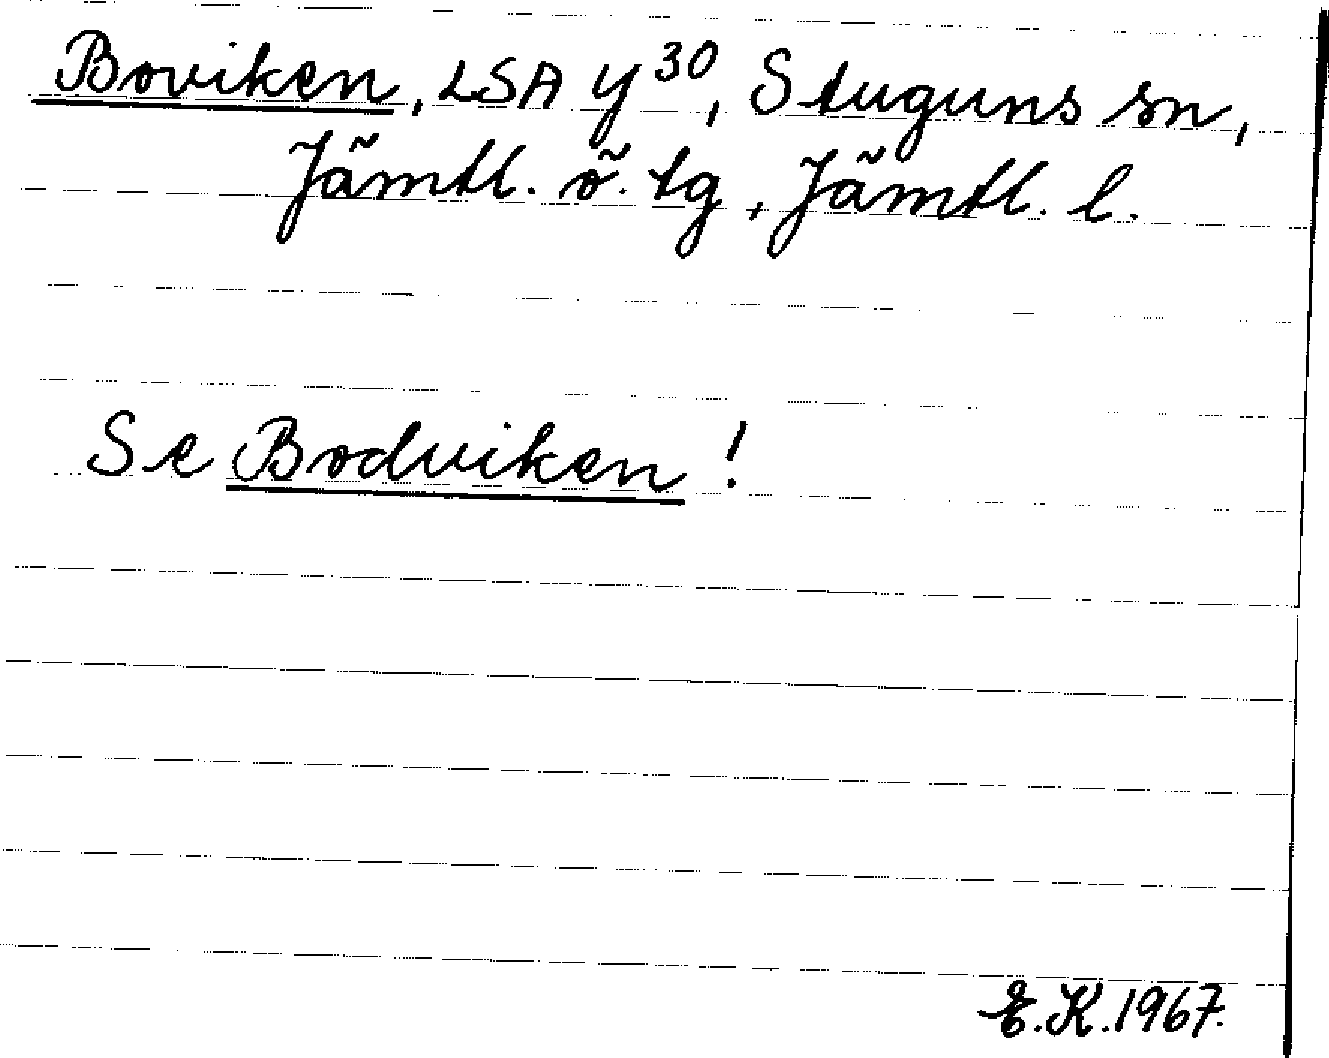 Boviken, LSA y³⁰, Stuguns sn,
Jämtl. ö. tg, Jämtl. l.
Se Bodviken!
E.K.1967.